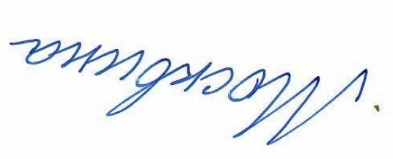 Москвина